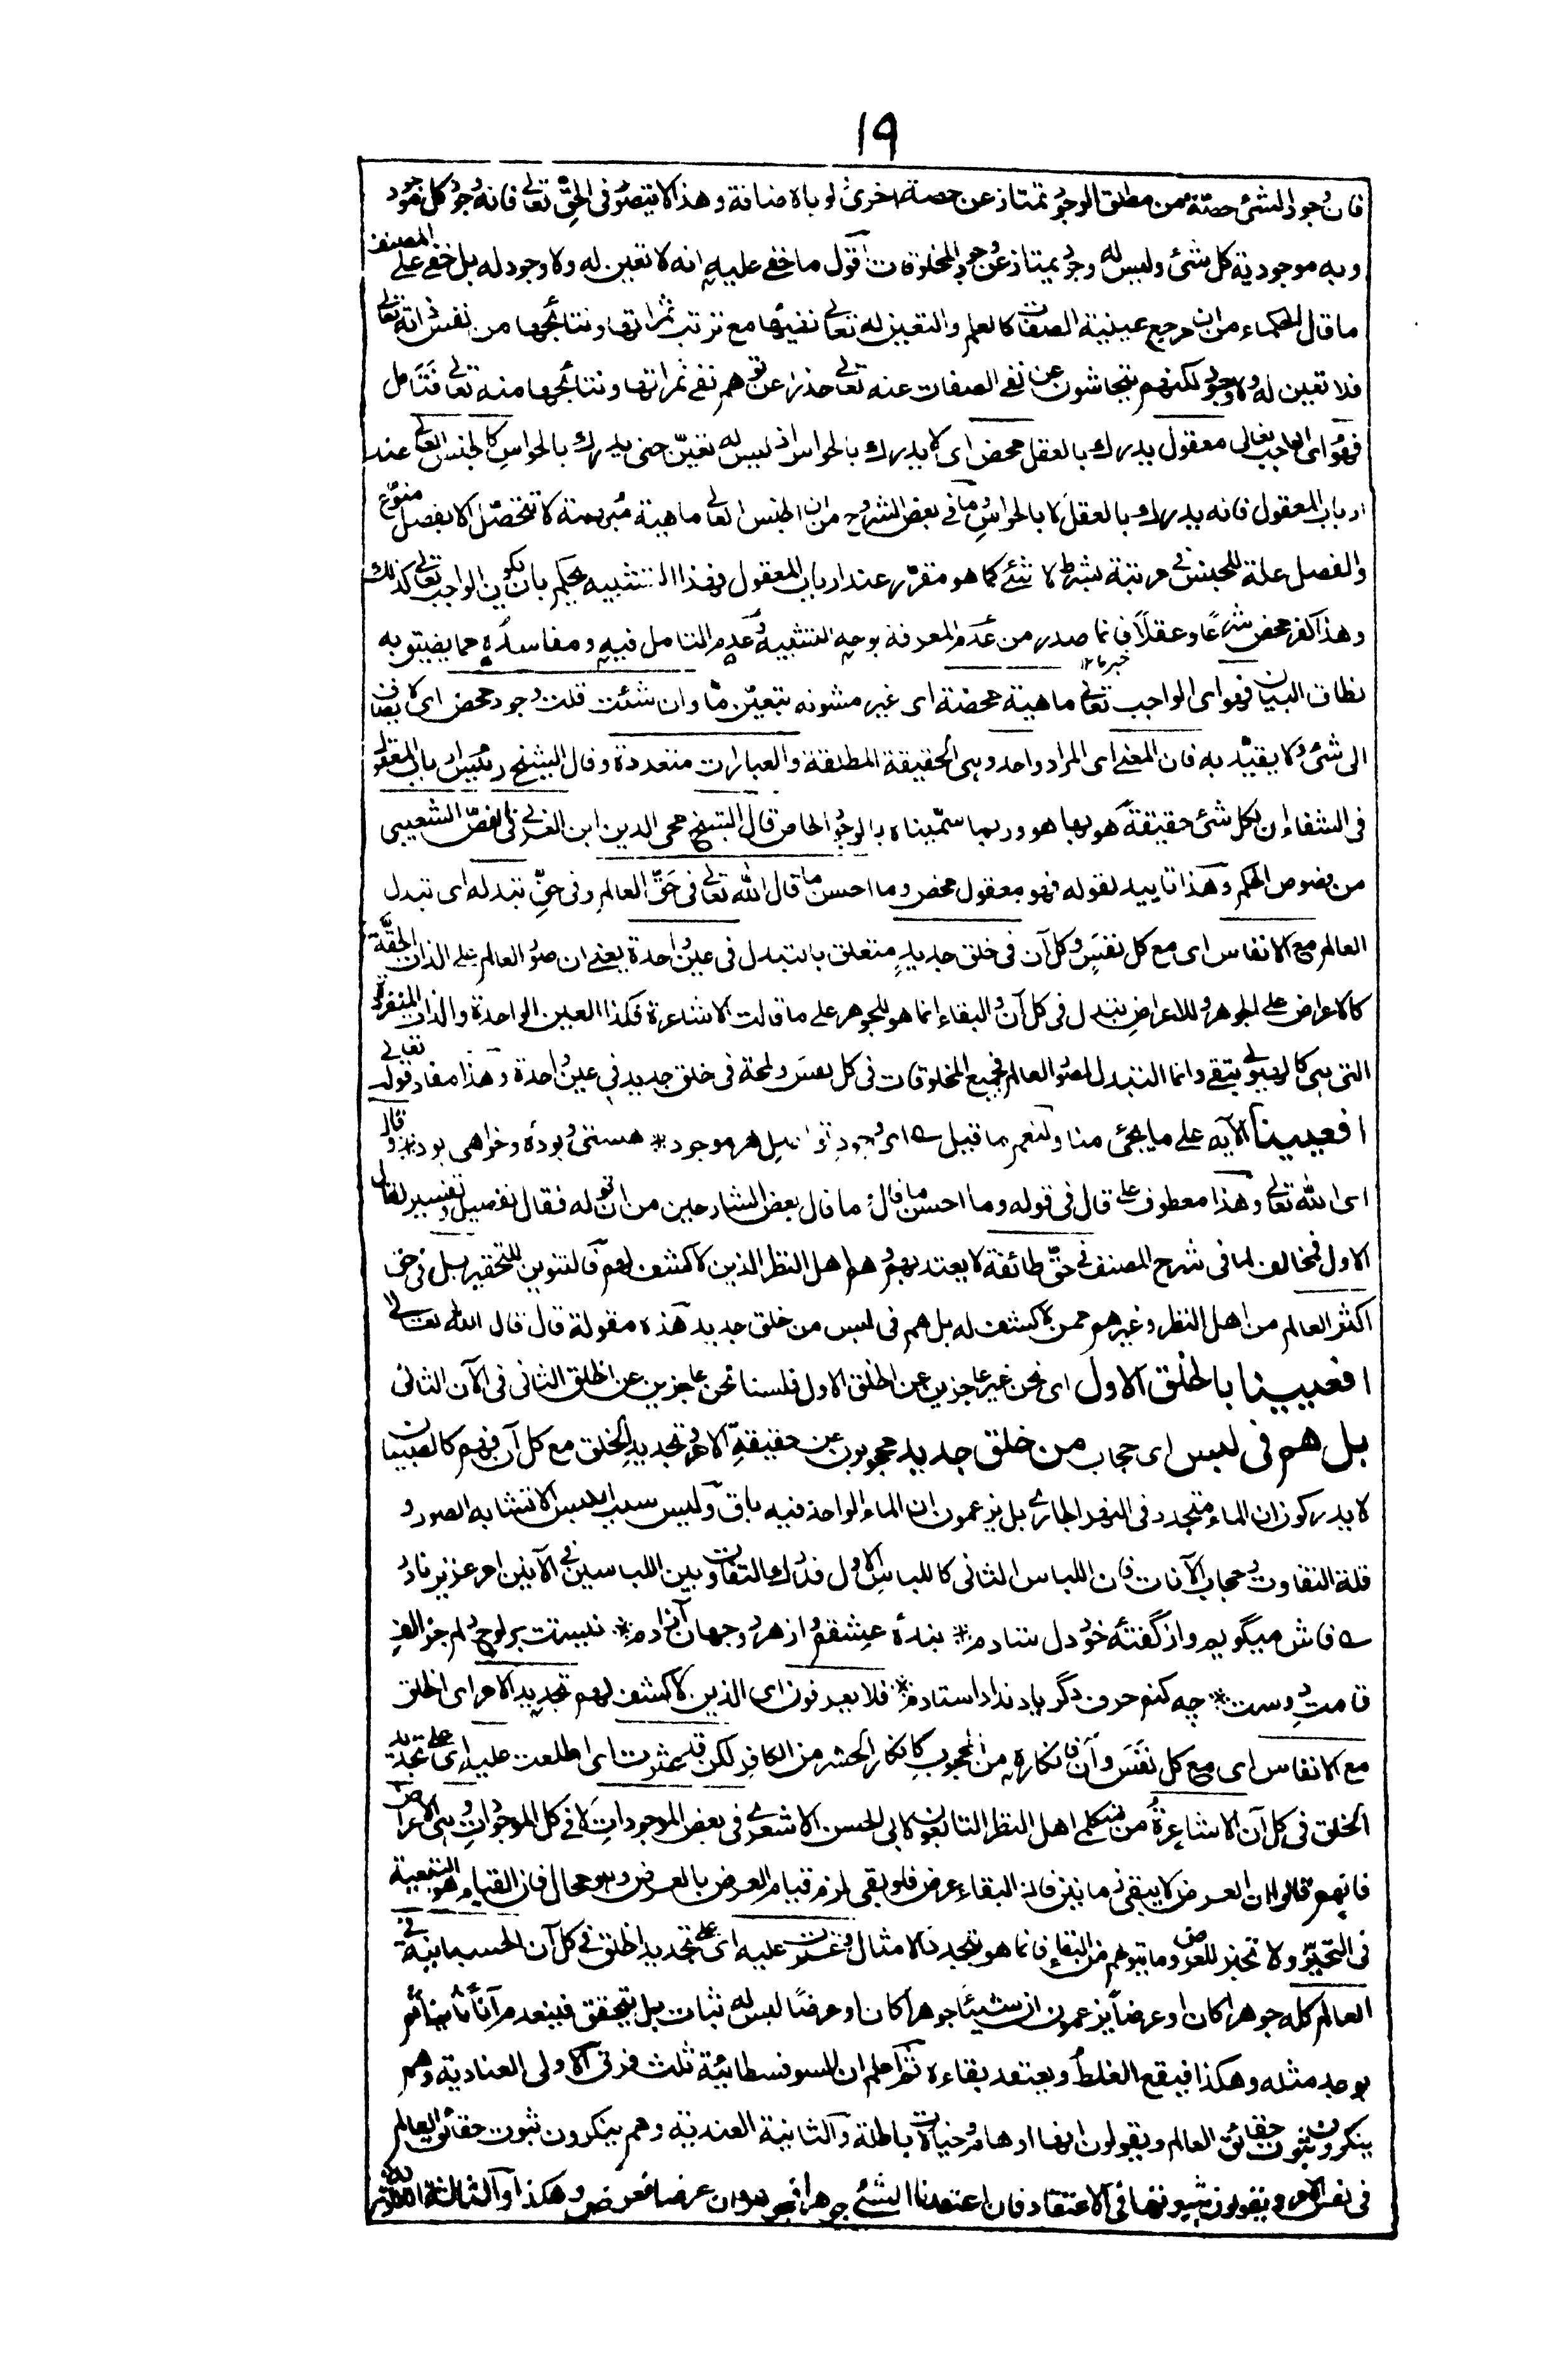 ١٩
فان وجود الشئ حصة من مطلق الوجود تمتاز عن حصة اخرى لو باضافة وهذا لا يتصور فى الحق تعالى فانه وجود كل موجود
وبه موجودية كل شئ وليس له وجود يمتاز عن وجود المخلوقات اقول ما خفى عليه انه لا تعين له ولا وجود له بل خفى على المصنف
ما قال الحكماء من ان مرجع عينية الصفات كالعلم والتعين له تعالى نفيها مع ترتب ثمراتها ونتائجها من نفس ذاته تعالى
فلا تعين له ولا وجود لكنهم يتحاشون عن نفى الصفات عنه تعالى حذرا عن توهم نفى ثمراتها ونتائجها منه تعالى فتأمل
فهو اى الواجب تعالى معقول يدرك بالعقل محض اى لا يدرك بالحواس اذ ليس له تعين حتى يدرك بالحواس كالجنس العالى عند
ارباب المعقول فانه يدرك بالعقل لا بالحواس وما فى بعض الشروح من ان الجنس العالى ماهية مبهمة لا تتحصل الا بفصل منوع
والفصل علة للجنس فى مرتبة بشرط لا شئ كما هو مقرر عند ارباب المعقول فهذا التشبيه يحكم بان يكون الواجب تعالى كذلك
وهذا كفر محض شرعا وعقلا فانما صدر من عدم المعرفة بوجه التشبيه وعدم التامل فيه ومفاسده مما يضيق به
نطاق البيان فهو اى الواجب تعالى خبر ١٢ ماهية محضة اى غير مشوبه بتعين ما وان شئت قلت وجود محض اى لا يضاف
الى شئ ولا يقيد به فان المعنى اى المراد واحد وهى الحقيقة المطلقة والعبارات متعددة وقال الشيخ رئيس ارباب المعقول
فى الشفاء ان لكل شئ حقيقة هو بها هو وربما سميناه بالوجود الخاص قال الشيخ محى الدين ابن العربى فى الفص الشعيبى
من فصوص الحكم وهذا تاييد لقوله فهو معقول محض وما احسن ما قال الله تعالى فى حق العالم وفى حق تبدله اى تبدل
العالم مع الانفاس اى مع كل نفس وكل آن فى خلق جديد متعلق بالتبدل فى عين واحدة يعنى ان صور العالم على الذات الحقة
كالاعراض على الجوهر وللاعراض يتبدل فى كل آن والبقاء انما هو للجوهر على ما قالت الاشاعرة فكذا العين الواحدة والذات المنفردة
التى هى كالهيولى يبقى وانما التبدل لصور العالم فجميع المخلوقات فى كل نفس ولمحة فى خلق جديد فى عين واحدة وهذا مفاد قوله تعالى
افعيينا الآيه على ما يجئ منا ولنعم ما قيل ؎ اى وجود تو هر موجود * هستى و بوده و خواهى بود * وقال
اى الله تعالى وهذا معطوف على قال فى قوله وما احسن ما قال ما قال بعض الشارحين من ان قوله فقال تفصيل وتفسير لقال
الاول فمخالف لما فى شرح المصنف فى حق طائفة لا يعتد بهم وهم اهل النظر الذين لا كشف لهم فالتنوين للتحقير بل فى حق
اكثر العالم من اهل النظر وغيرهم ممن لا كشف له بل هم فى لبس من خلق جديد هذه مقولة قال قال الله تعالى
افعيينا بالخلق الاول اى نحن غير عاجزين عن الخلق الاول فلسنا نحن عاجزين عن الخلق الثانى فى الآن الثانى
بل هم فى لبس اى حجاب من خلق جديد محجوبون عن حقيقة الامر وتجديد الخلق مع كل آن فهم كالصبيان
لا يدركون ان الماء متجدد فى النهر الجارى بل يزعمون ان الماء الواحد فيه باق وليس سبب اللبس الا تشابه الصور و
قلة التفاوت وحجاب الآنات فان اللباس الثانى كاللباس الاول فدرك التفاوت بين اللباسين فى الآنين امر عزيز نادر
؎ فاش ميگويم و از گفتهٔ خود دل شادم * بندهٔ عشقم و از هر دو جهان آزادم * نيست بر لوح دلم جز الف
قامت دوست * چه كنم حرف دگر ياد نداد استادم * فلا يعرفون اى الذين لا كشف لهم تجديد الامر اى الخلق
مع الانفاس اى مع كل نفس وآن فانكاره من المحجوب كانكار الحشر من الكافر لكن قد عثرت اى اطلعت عليه اى على تجديد
الخلق فى كل آن الاشاعرة من متكلمى اهل النظر التابعون لابى الحسن الاشعرى فى بعض الموجودات لا فى كل الموجودات وهى الاعراض
فانهم قالوا ان العرض لا يبقى زمانين فان البقاء عرض فلو بقى لزم قيام العرض بالعرض وهو محال فان القيام هو التبعية
فى التحيز ولا تحيز للعرض وما يتوهم من البقاء فانما هو بتجدد الامثال وعثرت عليه اى على تجديد الخلق فى كل آن الحسبانية فى
العالم كله جوهرا كان او عرضا يزعمون ان شيئا جوهرا كان او عرضا ليس له ثبات بل يتحقق فينعدم آنا ثم
يوجد مثله وهكذا فيقع الغلط ويعتقد بقاءه ثم اعلم ان للسوفسطائية ثلث فرق الاولى العنادية وهم
ينكرون ثبوت حقائق العالم ويقولون انها اوهام وخيالات باطلة والثانية العندية وهم ينكرون ثبوت حقائق العالم
فى نفس الامر ويقولون بثبوتها فى الاعتقاد فان اعتقدنا الشئ جوهرا فجوهر وان عرضا فعرض وهكذا والثالثة اللاادرية